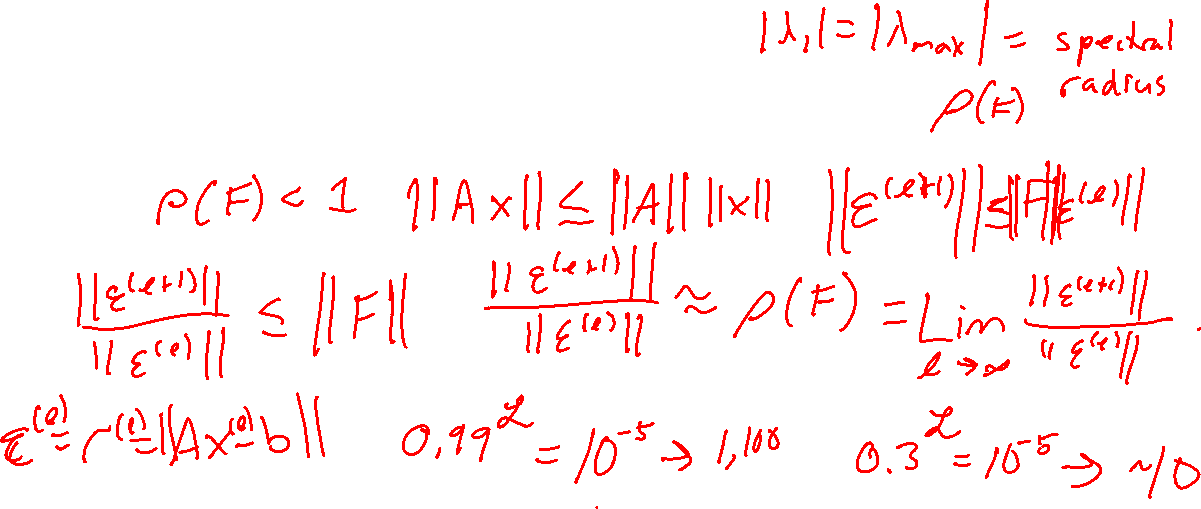 |λ₁| = |λmax| = spectral radius
ρ(F)
ρ(F) < 1 ||Ax|| ≤ ||A|| ||x|| ||ε^(ℓ+1)|| ≤ ||F|| ||ε^(ℓ)||
||ε^(ℓ+1)|| / ||ε^(ℓ)|| ≤ ||F|| ||ε^(ℓ+1)|| / ||ε^(ℓ)|| ≈ ρ(F) = Lim ℓ→∞ ||ε^(ℓ+1)|| / ||ε^(ℓ)|| .
ε^(ℓ) = r^(ℓ) = ||Ax^(ℓ) - b|| 0.99^L = 10^-5 → 1,100 0.3^L = 10^-5 → ~10